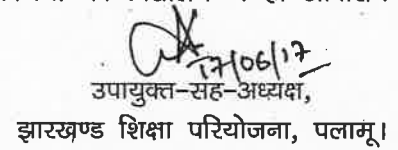 17/06/17
उपायुक्त-सह-अध्यक्ष,
झारखण्ड शिक्षा परियोजना, पलामू।